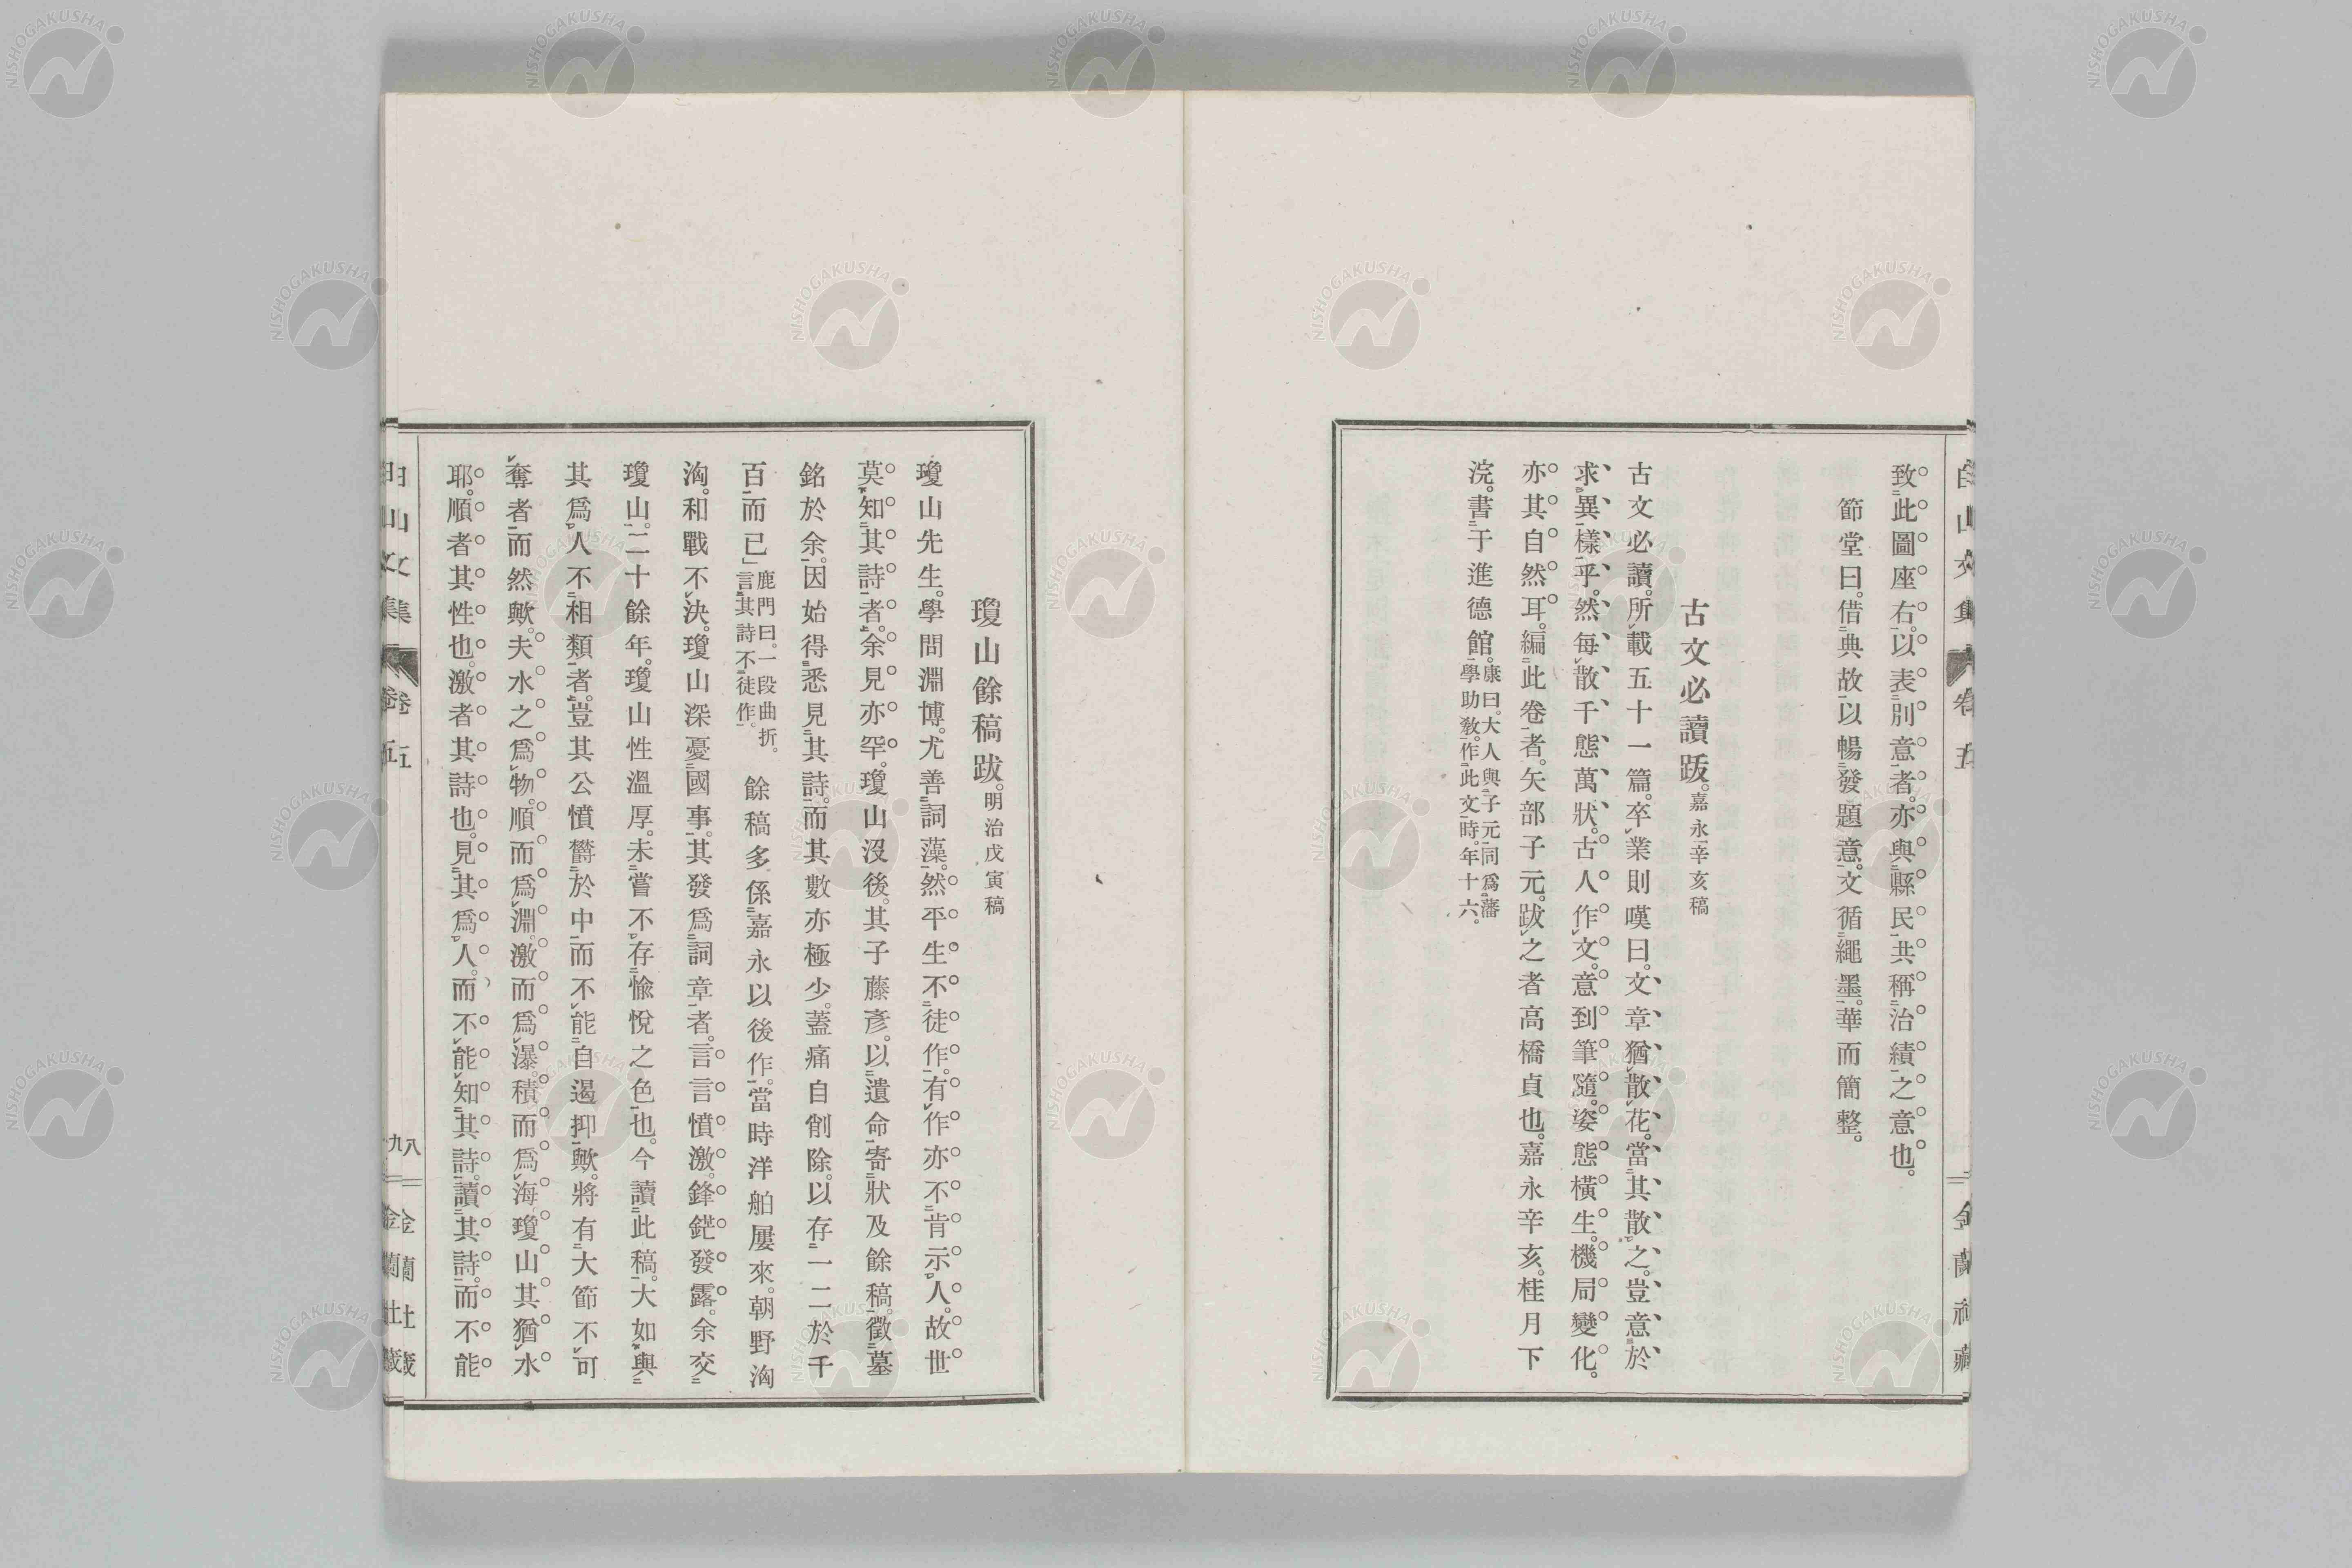 致此圖座右。以表別意者。亦與縣民共稱治績之意也。
節堂曰。借典故以暢發題意。文循繩墨。華而簡整。
古文必讀跋。嘉永辛亥稿
古文必讀。所載五十一篇。卒業則嘆曰。文章猶散花。當其散之。豈意於
求異樣乎。然每散千態萬狀。古人作文。意到筆隨。姿態橫生。機局變化。
亦其自然耳。編此卷者。矢部子元。跋之者高橋貞也。嘉永辛亥。桂月下
浣。書于進德館。康曰。大人與子元同爲藩
學助敎。作此文時。年十六。
白山文集 卷五
金蘭社藏
瓊山餘稿跋。明治戊寅稿
瓊山先生。學問淵博。尤善詞藻。然平生不徒作。有作亦不肯示人。故世
莫知其詩者。余見亦罕。瓊山沒後。其子藤彥。以遺命寄狀及餘稿。徵墓
銘於余。因始得悉見其詩。而其數亦極少。蓋痛自削除。以存一二於千
百而已」鹿門曰。一段曲折。
言其詩不徒作。
餘稿多係嘉永以後作。當時洋舶屢來。朝野洶
洶。和戰不決。瓊山深憂國事。其發爲詞章者。言言憤激。鋒鋩發露。余交
瓊山。二十餘年。瓊山性溫厚。未嘗不存愉悅之色也。今讀此稿。大如與
其爲人不相類者。豈其公憤欝於中。而不能自遏抑歟。將有大節不可
奪者而然歟。夫水之爲物。順而爲淵。激而爲瀑。積而爲海。瓊山其猶水
耶。順者其性也。激者其詩也。見其爲人。而不能知其詩。讀其詩。而不能
白山文集 卷五
八
九
金蘭社藏